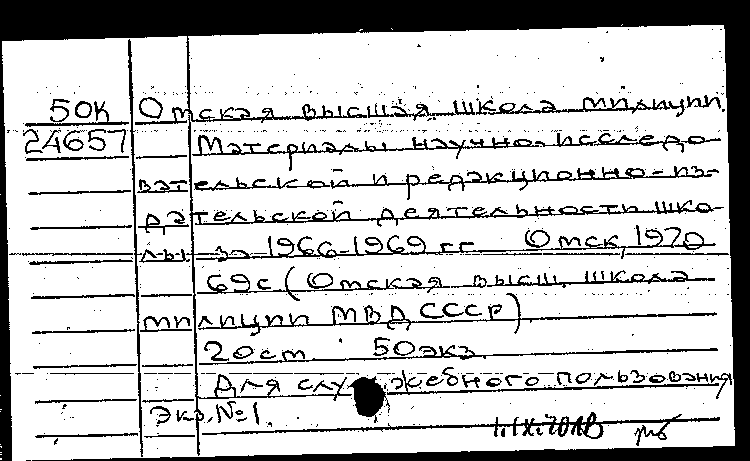 50К Омская высшая школа милиции.
24657 Материалы научно-исследо-
вательской и редакционно-из-
дательской деятельности шко-
лы за 1966-1969 гг Омск, 1970
69с (Омская высш. школа
милиции МВД СССР)
20см 50экз.
Для служебного пользования
Экз. №1.
1.IX.70